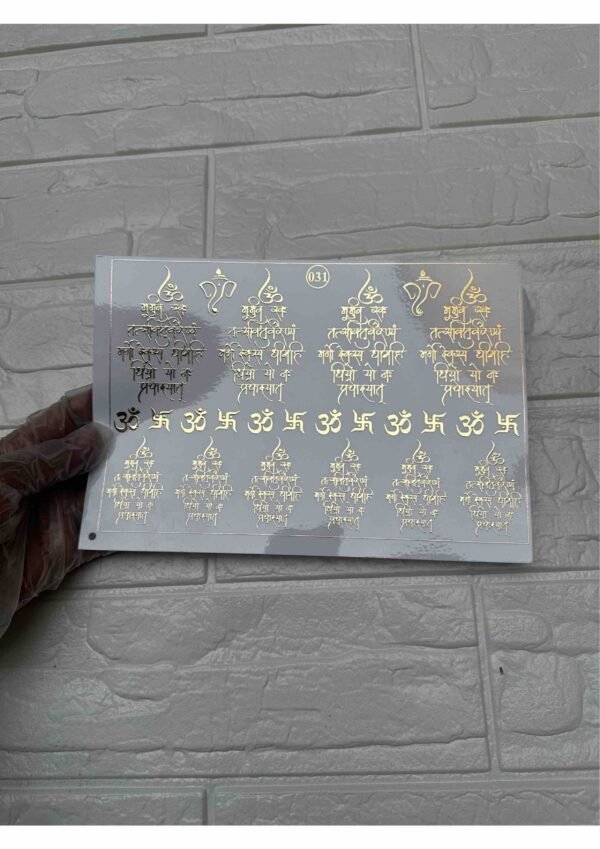 031
ॐ
भूर्भुवः स्वः
तत्सवितुर्वरेण्यं
भर्गो देवस्य धीमहि
धियो यो नः
प्रचोदयात्
ॐ
भूर्भुवः स्वः
तत्सवितुर्वरेण्यं
भर्गो देवस्य धीमहि
धियो यो नः
प्रचोदयात्
ॐ
भूर्भुवः स्वः
तत्सवितुर्वरेण्यं
भर्गो देवस्य धीमहि
धियो यो नः
प्रचोदयात्
ॐ
भूर्भुवः स्वः
तत्सवितुर्वरेण्यं
भर्गो देवस्य धीमहि
धियो यो नः
प्रचोदयात्
ॐ 卐 ॐ 卐 ॐ 卐 ॐ 卐 ॐ 卐
ॐ
भूर्भुवः स्वः
तत्सवितुर्वरेण्यं
भर्गो देवस्य धीमहि
धियो यो नः
प्रचोदयात्
ॐ
भूर्भुवः स्वः
तत्सवितुर्वरेण्यं
भर्गो देवस्य धीमहि
धियो यो नः
प्रचोदयात्
ॐ
भूर्भुवः स्वः
तत्सवितुर्वरेण्यं
भर्गो देवस्य धीमहि
धियो यो नः
प्रचोदयात्
ॐ
भूर्भुवः स्वः
तत्सवितुर्वरेण्यं
भर्गो देवस्य धीमहि
धियो यो नः
प्रचोदयात्
ॐ
भूर्भुवः स्वः
तत्सवितुर्वरेण्यं
भर्गो देवस्य धीमहि
धियो यो नः
प्रचोदयात्
ॐ
भूर्भुवः स्वः
तत्सवितुर्वरेण्यं
भर्गो देवस्य धीमहि
धियो यो नः
प्रचोदयात्